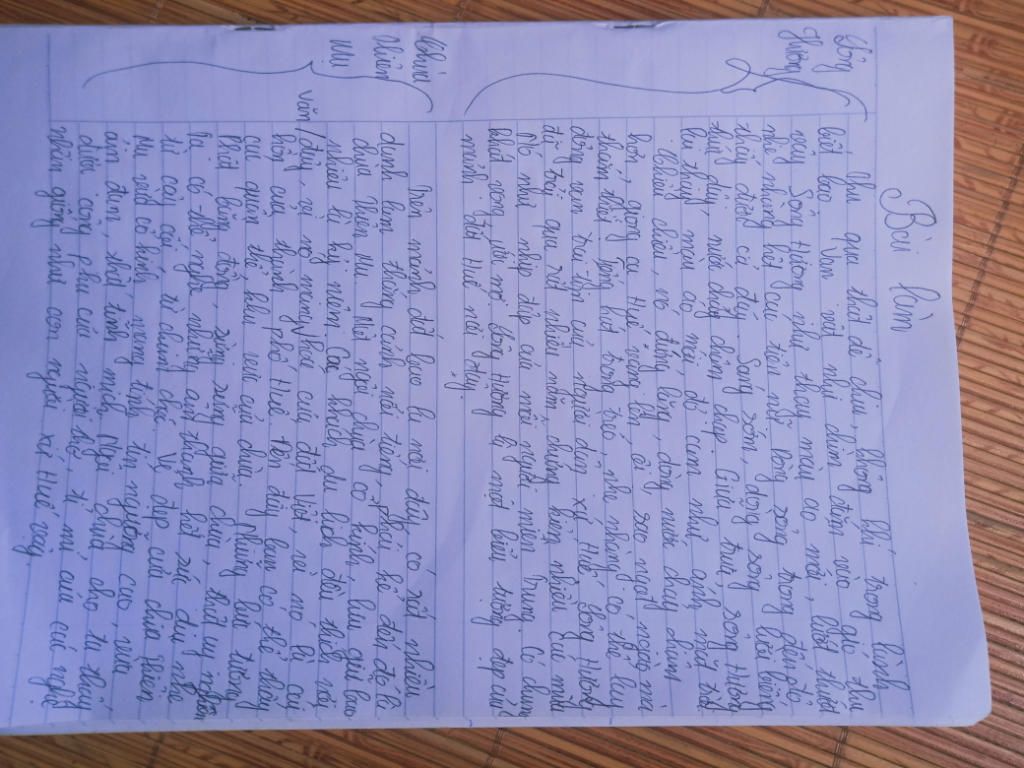 Bài làm
Sông
Hương
Thu qua thật dễ chịu, không khí trong lành
biết bao. Vạn vật như chìm đắm vào gió thu
này. Sông Hương như thay màu áo mới, lướt thướt
nhẹ nhàng hệt của tiểu nữ. Dòng sông trong đến độ
thấy được cả đáy. Sáng sớm, dòng sông lười biếng
thức dậy, nước chảy chầm chậm. Giữa trưa, sông Hương
lại thay màu áo mới đỏ cam như gánh mặt trời
Chiều chiều, nó đứng lặng, dòng nước chảy chậm
hơn, giọng ca Huế vang lên ôi sao ngọt ngào mà
thắm thiết. Tiếng hát trong trẻo, nhẹ nhàng có thể lay
động con trái tim của người đến xứ Huế. Sông Hương
đã trải qua rất nhiều năm, chứng kiến nhiều cái mới
Nó như nhịp đập của mỗi người miền Trung. Có chung
khát vọng, ước mơ. Sông Hương là một biểu tượng đẹp của
mảnh đất Huế nơi đây.
Chùa
Thiên
Mụ
Trên mảnh đất bao la nơi đây, có rất nhiều
danh lam thắng cảnh nổi tiếng, phải kể đến đó là
chùa Thiên Mụ. Một ngôi chùa cổ kính, lưu giữ bao
nhiêu là kỷ niệm. Các khách du lịch đều thích nơi
đây, vì nó mang văn hóa của đất Việt, nơi nó là cái
hồn của thành phố Huế. Đến đây bạn có thể thấy
cái quần thể, khu vực của chùa. Những bức tượng
Phật bằng đồng, sừng sững giữa chùa, thật uy nghiêm
Ta có thể nghe những âm thanh hết sức dịu nhẹ
từ cây cối, từ chuông chùa. Vẻ đẹp của chùa Thiên
Mụ vừa cổ kính, mang tính tín ngưỡng cao, vừa
ảm đạm, thật tĩnh mịch. Ngôi chùa cho ta thấy
được công phu của người thợ tỉ mỉ của các nghệ
nhân giống như con người xứ Huế vậy.